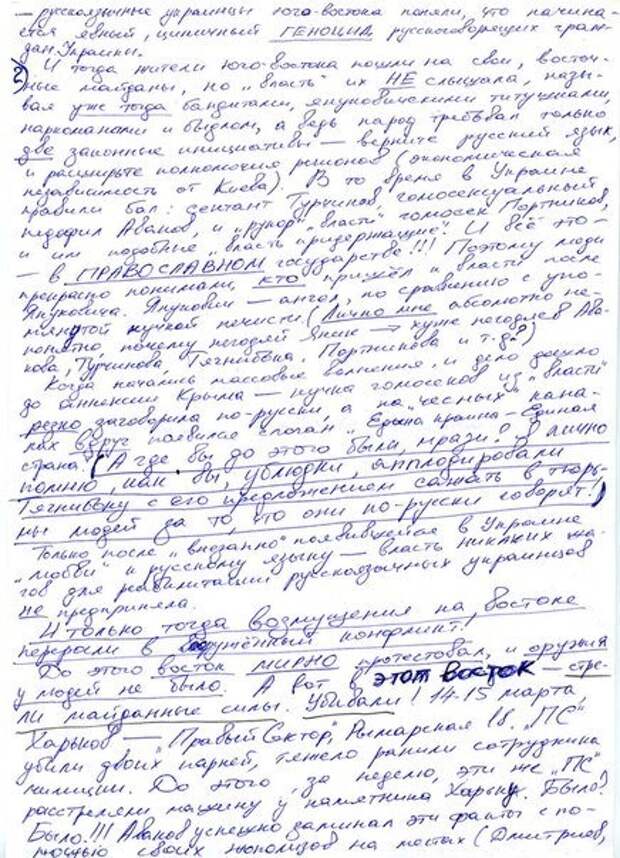 — русскоязычные украинцы юго-востока поняли, что начина-
ется явный, циничный ГЕНОЦИД русскоговорящих граж-
дан Украины.
2) И тогда жители юго-востока пошли на свои, восточ-
ные майданы, но „власть" их НЕ слышала, назы-
вая уже тогда бандитами, януковическими титушками,
наркоманами и быдлом, а ведь народ требовал только
две законные инициативы — верните русский язык,
и расширьте полномочия регионов (экономическая
независимость от Киева). В то время в Украине
правили бал: сектант Турчинов, гомосексуальный
педофил Аваков, и „рупор" власти" гомосек Портников,
и им подобные „власть придержащие". И всё это —
— в ПРАВОСЛАВНОМ государстве!!! Поэтому люди
прекрасно понимали, кто пришёл к власти после
Януковича. Янукович — ангел, по сравнению с упо-
мянутой кучкой нечисти. (Лично мне абсолютно не-
понятно, почему негодяй Янык → хуже негодяев Ава-
кова, Турчинова, Тягнибока, Портникова и т.д.?)
Когда начались массовые волнения, и дело дошло
до аннексии Крыма — кучка гомосеков из „власти"
резко заговорила по-русски, а на „честных" кана-
лах вдруг появился слоган „Едына крайина — Единая
страна". (А где вы до этого были, мрази? Я лично
помню, как вы, ублюдки, аплодировали
Тягнибоку с его предложением сажать в тюрь-
мы людей за то, что они по-русски говорят!)
Только после „внезапно" появившейся в Украине
„любви" к русскому языку — власть никаких ша-
гов для реабилитации русскоязычных украинцев
не предприняла.
И только тогда возмущения на Востоке
переросли в вооружённый конфликт!
До этого восток мирно протестовал, и оружия
у людей не было. А вот в этот восток — стре-
ли майданные силы. Убивали! 14-15 марта,
Харьков — „Правый Сектор", Рымарская 18. „ПС"
убили двоих парней, тяжело ранили сотрудника
милиции. До этого, за неделю, эти же „ПС"
расстреляли машину у памятника Харьку. Было!
Было!!! Аваков успешно заминал эти факты с по-
мощью своих жополизов на постах (Дмитриев,